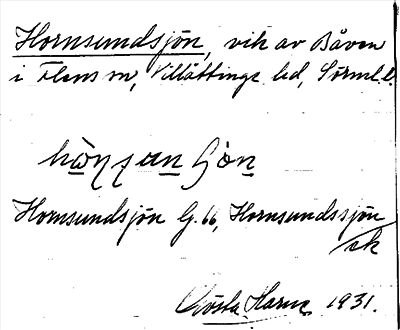 Hornsundsjön, vik av Båven
i Flens sn, Villåttinge hd, Sörml. l.
Hornsundsjön G. 66, Hornsundssjön
sk
Gösta Harne 1931.